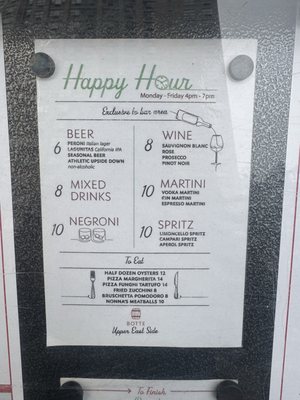 Happy Hour
Monday - Friday 4pm - 7pm
Exclusive to bar area
6
BEER
PERONI Italian lager
LAGUNITAS California IPA
SEASONAL BEER
ATHLETIC UPSIDE DOWN
non-alcoholic
8
MIXED
DRINKS
10
NEGRONI
8
WINE
SAUVIGNON BLANC
ROSE
PROSECCO
PINOT NOIR
10
MARTINI
VODKA MARTINI
GIN MARTINI
ESPRESSO MARTINI
10
SPRITZ
LIMONCELLO SPRITZ
CAMPARI SPRITZ
APEROL SPRITZ
To Eat
HALF DOZEN OYSTERS 12
PIZZA MARGHERITA 14
PIZZA FUNGHI TARTUFO 14
FRIED ZUCCHINI 8
BRUSCHETTA POMODORO 8
NONNA'S MEATBALLS 10
BOTTE
Upper East Side
To Finish